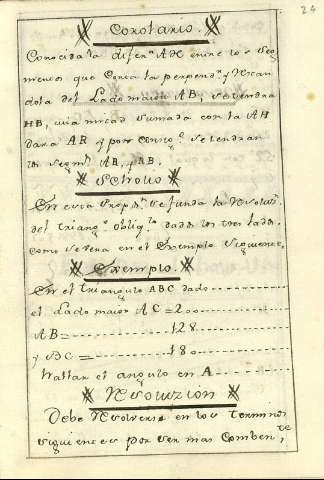 24
Corolario.
Conocida la difer.ª AH entre los seg
mentos que corta la perpend.r y Restan
dola del Lado maior AB, se tendra
HB, cuia mitad sumada con la AH
dara AR y por consig.te se tendran
los segm.s AR, y RB.
Scholio
En esta Propos.n se funda la Resoluz.n
del triang.o obliq.o dados los tres lados,
como se vera en el Exemplo siguiente.
Exemplo.
En el triangulo ABC dado
el Lado maior AC = 200
AB = 128
y BC = 180
hallar el angulo en A
Resoluzion
Debe Resolverse en los terminos
siguientes por ser mas Comben.te